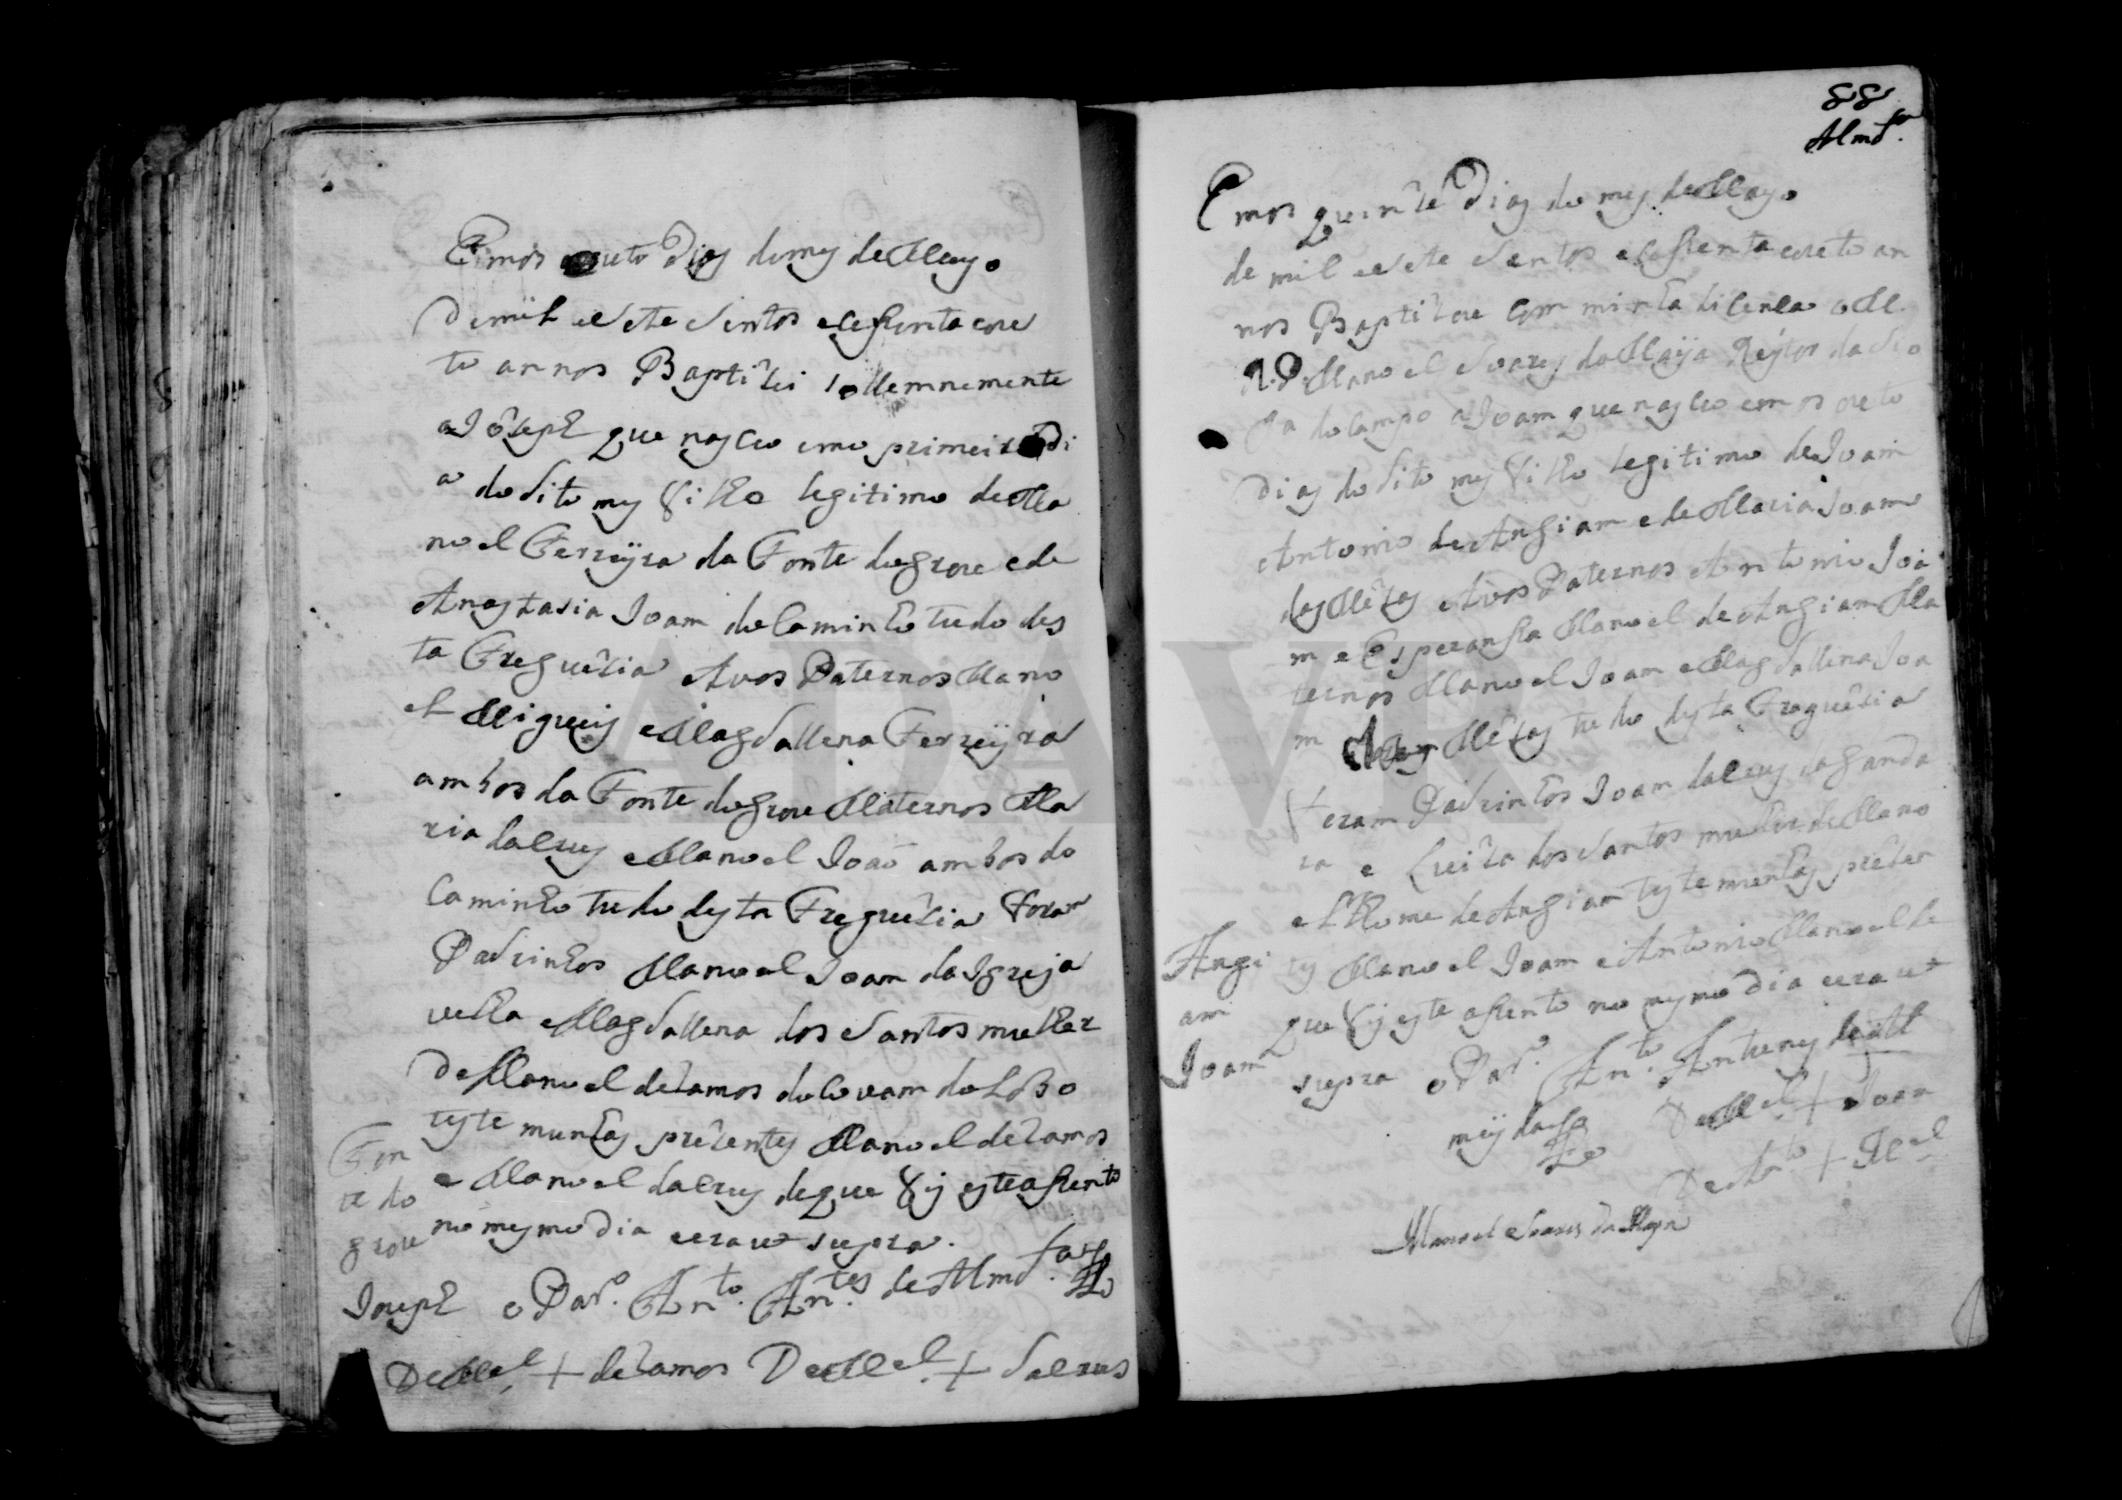 Emos outo Dias do mes de Mayo
De mil e sete sentos e sesenta e ou
to annos Baptizei solemnemente
a Jozeph que nasceo emo primeiro di
a do dito mes filho legitimo de Ma
noel Ferreyra da Fonte do grou e de
Anastasia Joam do Caminho tudo des
ta Freguezia Avos Paternos Mano
el Migueis e Magdallena Ferreyra
ambos da Fonte do grou Maternos Ma
ria da Crus e Manoel Joaõ ambos do
Caminho tudo desta Freguezia Foram
Padrinhos Manoel Joam da Igreja
velha e Magdallena dos Santos mulher
De Manoel de Ramos do Covam do Lobo
testemunhas prezentes Manoel de Ramos
e Manoel da Crus de que fis este asento
no mesmo dia era ut supra.
o Par.º Ant.º Ant.es de Almd.ª
De M.el + de Ramos De M.el + da Crus
Fon
te do
grou
Joseph
88
Almd.ª
Emos quinze Dias do mes de Mayo
de mil e sete sentos e sesenta e outo an
nos Baptizou com minha licenca o M.
R. P. Manoel Soares da Maya Reytor da
do campo a Joam que nasceo emos outo
Dias do dito mes filho legitimo de Joam
Antonio de Angiam e de Maria Joam
das Mezas Avos Paternos Antonio Joa
m e Esperansa Manoel de Angiam Ma
ternos Manoel Joam e Magdallena Joa
m das Mezas tudo desta Freguezia
foram Padrinhos Joam da Crus da ganda
ra e Luiza dos Santos mulher de Mano
el Thome de Angiam testemunhas prezen
tes Manoel Joam e Antonio Manoel de
que fis este asento no mesmo dia era ut
supra o Par.º Ant.º Antunes de Al
meyda
De M.el + Joam
De Ant.º + M.el
Manoel Soares da Maya
Angi
am
Joam
ADAVR